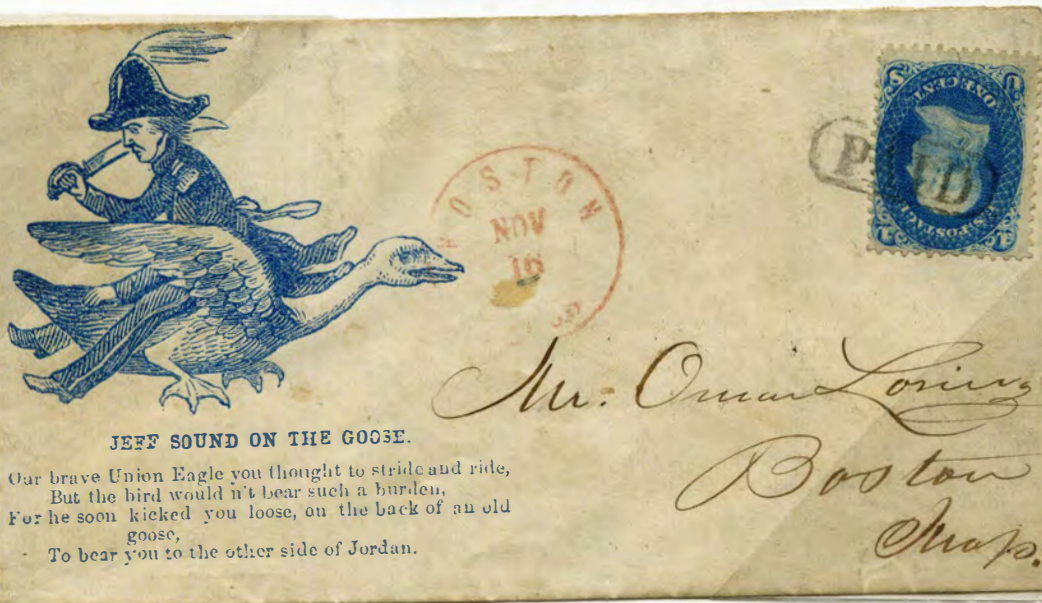 BOSTON
NOV
16
PAID
ONE CENT
POSTAGE
JEFF SOUND ON THE GOOSE.
Our brave Union Eagle you thought to stride and ride,
But the bird would n't bear such a burden,
For he soon kicked you loose, on the back of an old
goose,
To bear you to the other side of Jordan.
Mr. Omar Loring
Boston
Mass.